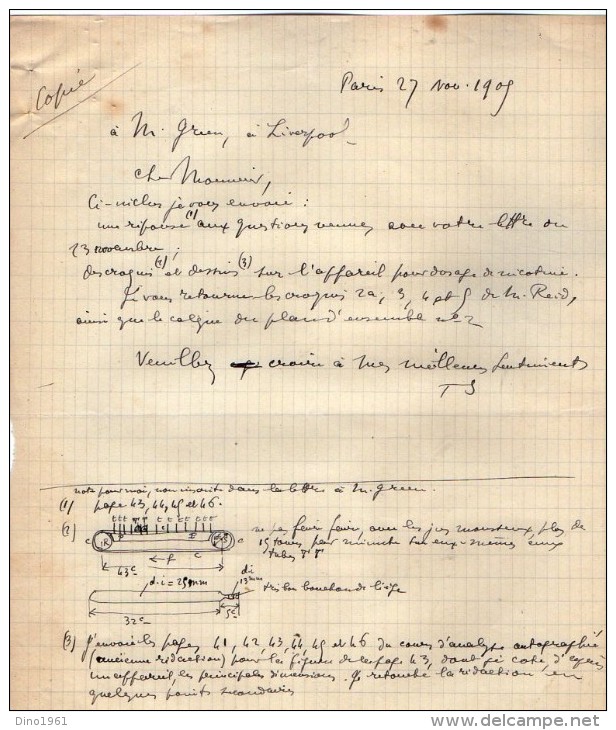 Copie
Paris 27 Nov. 1905
à M. Green, à Liverpool
Cher Monsieur,
Ci-inclus je vous envoie :
une réponse (1) aux questions venues avec votre lettre du
23 novembre ;
des croquis (2) et dessins (3) sur l'appareil pour dosage de nicotine.
Je vous retourne les croquis 2a, 3, 4 et 5 de M. Reid,
ainsi que le calque du plan d'ensemble no 2
Veuillez croire à mes meilleurs sentiments
T S
note pour moi, non inscrite dans la lettre à M. Green.
(1) page 43, 44, 45 et 46.
(2) ne pas faire avec les jus monstrueux, plus de
15 tours par minute sur eux-mêmes aux
tubes T T
t t t T T t t t t t t t
C R C
← f C
43c
d.i = 25mm
d.i
13mm
très bon bouchon de liège
32c 5c
(3) J'envoie les pages 41, 42, 43, 44, 45 et 46 du cours d'analyse autographié
(ancienne rédaction) pour la figure de la page 43, dont j'ai coté, d'après
un appareil, les principales dimensions. Je retouche la rédaction en
quelques points secondaires
Dino1961